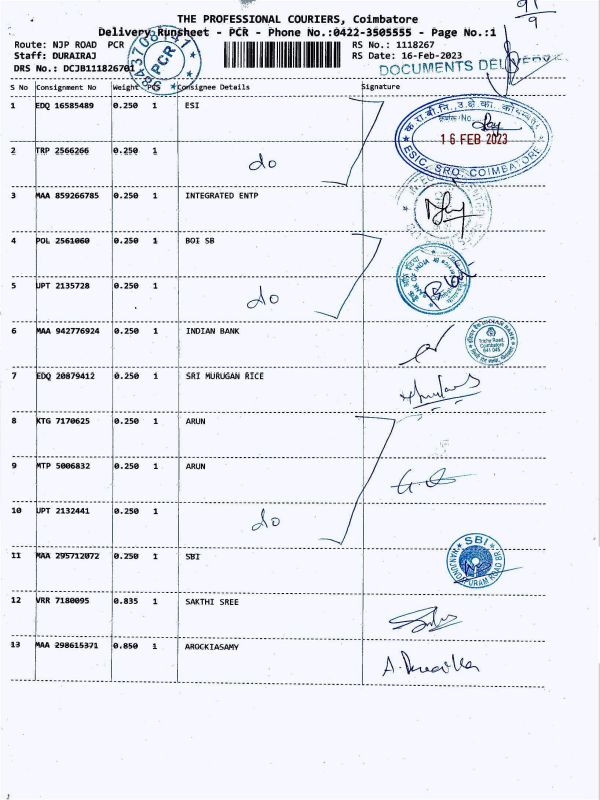 91
9
THE PROFESSIONAL COURIERS, Coimbatore
Delivery Runsheet - PCR - Phone No.:0422-3505555 - Page No.:1
Route: NJP ROAD PCR
RS No.: 1118267
Staff: DURAIRAJ
RS Date: 16-Feb-2023
DRS No.: DCJB111826701
PCR
DOCUMENTS
S No Consignment No Weight PCS Consignee Details Signature
1 EDQ 16585489 0.250 1 ESI
16 FEB 2023
ESIC, SRO, COIMBATORE
2 TRP 2566266 0.250 1 do
3 MAA 859266785 0.250 1 INTEGRATED ENTP
4 POL 2561060 0.250 1 BOI SB
BANK OF INDIA
5 UPT 2135728 0.250 1 do
6 MAA 942776924 0.250 1 INDIAN BANK
INDIAN BANK
Trichy Road,
Coimbatore
641 045
7 EDQ 20879412 0.250 1 SRI MURUGAN RICE
8 KTG 7170625 0.250 1 ARUN
9 MTP 5006832 0.250 1 ARUN
10 UPT 2132441 0.250 1 do
11 MAA 295712072 0.250 1 SBI
SBI
NANJUNDAPURAM ROAD BR.
12 VRR 7180095 0.835 1 SAKTHI SREE
13 MAA 298615371 0.850 1 AROCKIASAMY